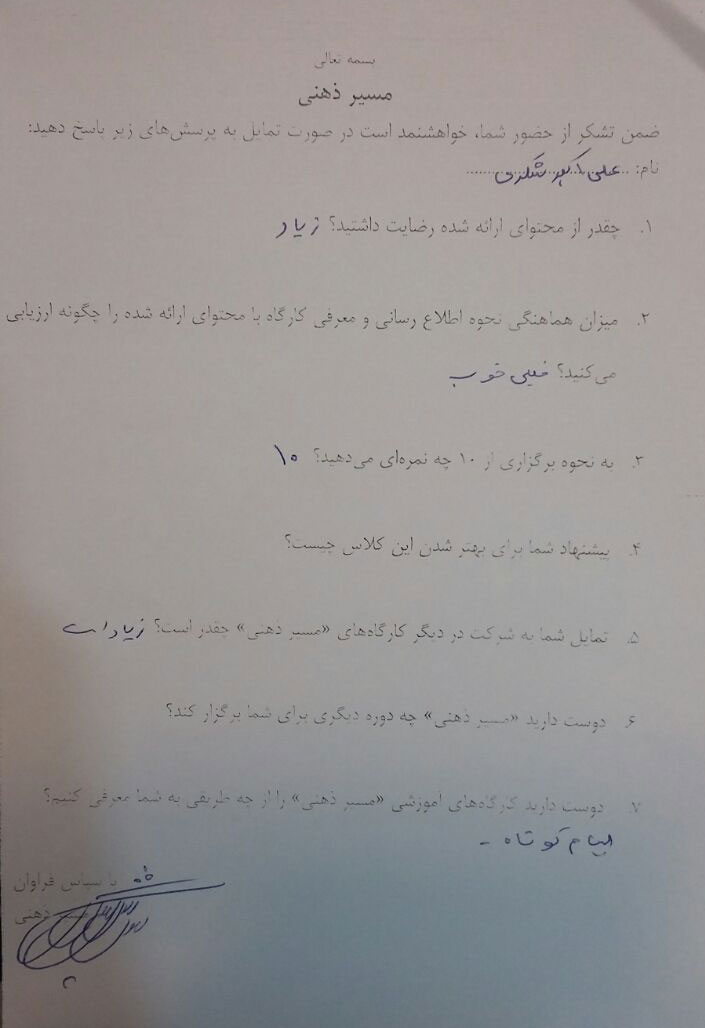 بسمه تعالی
مسیر ذهنی
ضمن تشکر از حضور شما، خواهشنمد است در صورت تمایل به پرسش‌های زیر پاسخ دهید:
نام: علی اکبر شکری
۱. چقدر از محتوای ارائه شده رضایت داشتید؟ زیاد
۲. میزان هماهنگی نحوه اطلاع رسانی و معرفی کارگاه با محتوای ارائه شده را چگونه ارزیابی
می‌کنید؟ خیلی خوب
۳. به نحوه برگزاری از ۱۰ چه نمره‌ای می‌دهید؟ ۱۰
۴. پیشنهاد شما برای بهتر شدن این کلاس چیست؟
۵. تمایل شما به شرکت در دیگر کارگاه‌های «مسیر ذهنی» چقدر است؟ زیاد است
۶. دوست دارید «مسیر ذهنی» چه دوره دیگری برای شما برگزار کند؟
۷. دوست دارید کارگاه‌های آموزشی «مسیر ذهنی» را از چه طریقی به شما معرفی کنیم؟
پیام کوتاه -
با سپاس فراوان
ذهنی